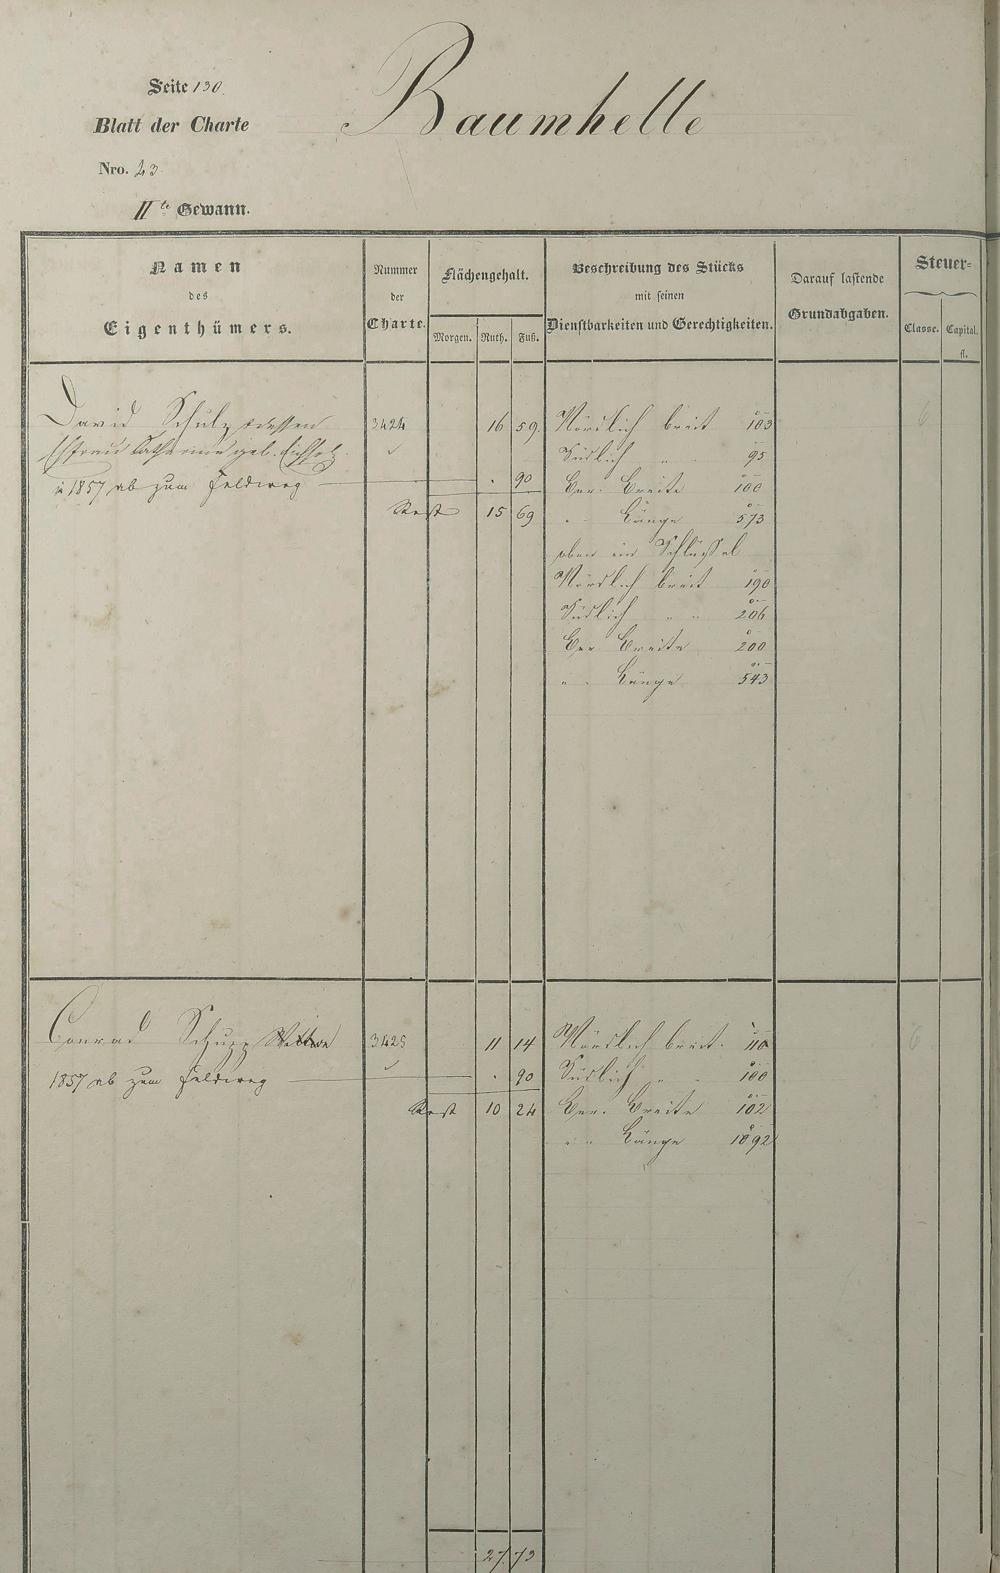 Seite 130.
Baumhelle
Blatt der Charte
Nro. 23
IIte Gewann.
Namen des Eigenthümers.
Nummer der Charte.
Flächengehalt.
Morgen. Ruth. Fuß.
Beschreibung des Stücks mit seinen Dienstbarkeiten und Gerechtigkeiten.
Darauf lastende Grundabgaben.
Steuer=
Classe. Capital. fl.
David Schulz dessen 3424 16 59. Nördlich breit 103
Ehfrau Catharine geb. Südlich " " 95
in 1857 ab zum Feldweg . 90 Ber. Breite 100
Rest 15 69 " " Länge 573
oben ein Schlüssel
Nördlich breit 190
Südlich " " 206
Ber. Breite 200
" " Länge 543
Conrad Schupp Wittwe 3425 11 14 Nördlich breit. 110
1857 ab zum Feldweg . 90 Südlich " " 100
Rest 10 24 Ber. Breite 102
" " Länge 1092
27 73